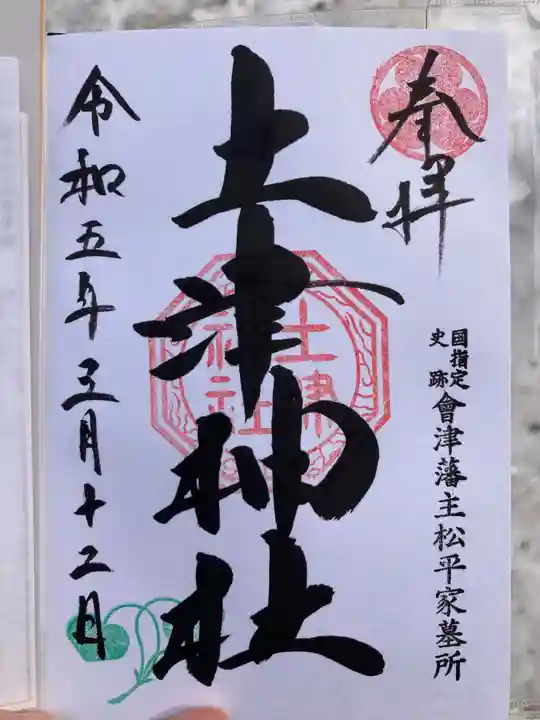 奉拝
國指定
史跡
會津藩主松平家墓所
土津神社
土津
神社
令和五年三月十二日